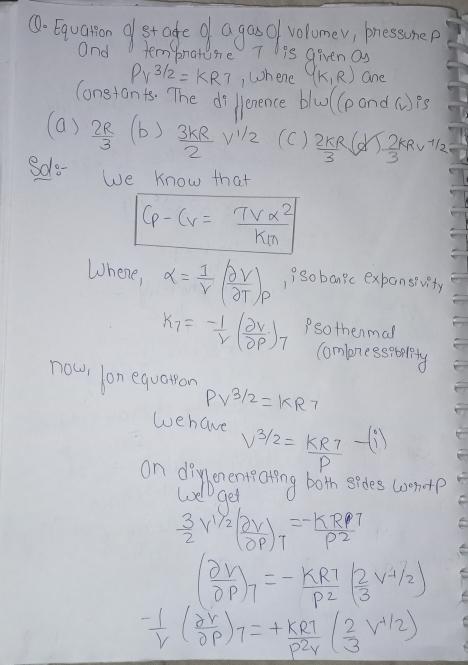 Q. Equation of state of a gas of volume v, pressure P
and temprature T is given as
PV^3/2 = KRT, where (K,R) are
Constants. The difference b/w (Cp and Cv) is
(a) 2R/3 (b) 3KR/2 V^1/2 (C) 2KR/3 (d) 2/3 KRV^-1/2
Sol:-
We know that
Cp - Cv = TVα^2/Km
Where, α = 1/V (∂V/∂T)P, isobaric expansivity
KT = -1/V (∂V/∂P)T isothermal
Compressibility
now, for equation
PV^3/2 = KRT
We have
V^3/2 = KRT/P -(i)
On differentiating both sides w.r.t P
We get
3/2 V^1/2 (∂V/∂P)T = -KRT/P^2
(∂V/∂P)T = - KRT/P^2 (2/3 V^-1/2)
-1/V (∂V/∂P)T = + KRT/P^2V (2/3 V^-1/2)